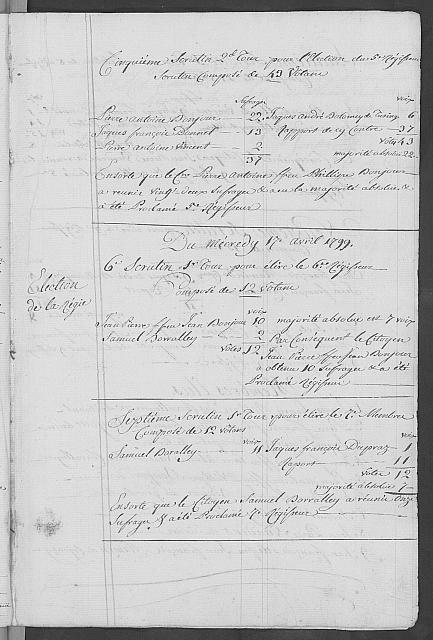 Cinquiéme Scrutin 2d Tour pour l'Election du 5e Régisseur
Scrutin Composé de 43 Votans
Suffrages
Pierre Antoine Bonjour 22
Jaques françois Donnet 13
Pierre Antoine Vincent 2
37
voix
Jaques André 6
Rapport de cy Contre 37
Votes 43
majorité absolue 22
Ensorte que le Cen Pierre Antoine ffeu Philippe Bonjour
a reunis vingt deux Suffrages & a eu la majorité absolue &
a été Proclamé 5e Régisseur
Du Mécredy 17e avril 1799
Election
de la Régie
6e Scrutin 1er Tour pour élire le 6e Régisseur
Composé de 12 Votans
voix
Jean Pierre ffeu Jean Bonjour 10
Samuel Borralley 2
Votes 12
majorité absolue est 7 voix
Par Conséquent le Citoyen
Jean Pierre ffeu Jean Bonjour
a obtenu 10 Suffrages & a été
Proclamé Régisseur
Septiéme Scrutin 1er Tour pour élire le 7e Membre
Composé de 12 Votans
voix
Samuel Boralley 11
voix
Jaques françois Dupraz 1
Raport 11
Votes 12
majorité absolue 7
Ensorte que le Citoyen Samuel Borralley a réunis Onze
Suffrages & a été Proclamé 7e Régisseur